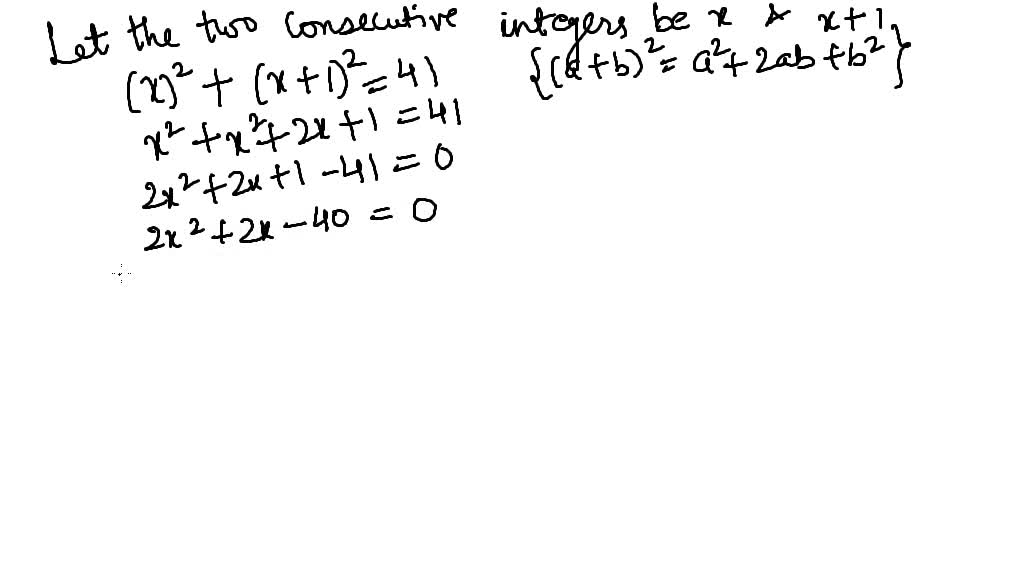 Let the two consecutive integers be x & x+1
(x)² + (x+1)² = 41 {(a+b)² = a²+2ab+b²}
x² + x² + 2x + 1 = 41
2x² + 2x + 1 - 41 = 0
2x² + 2x - 40 = 0